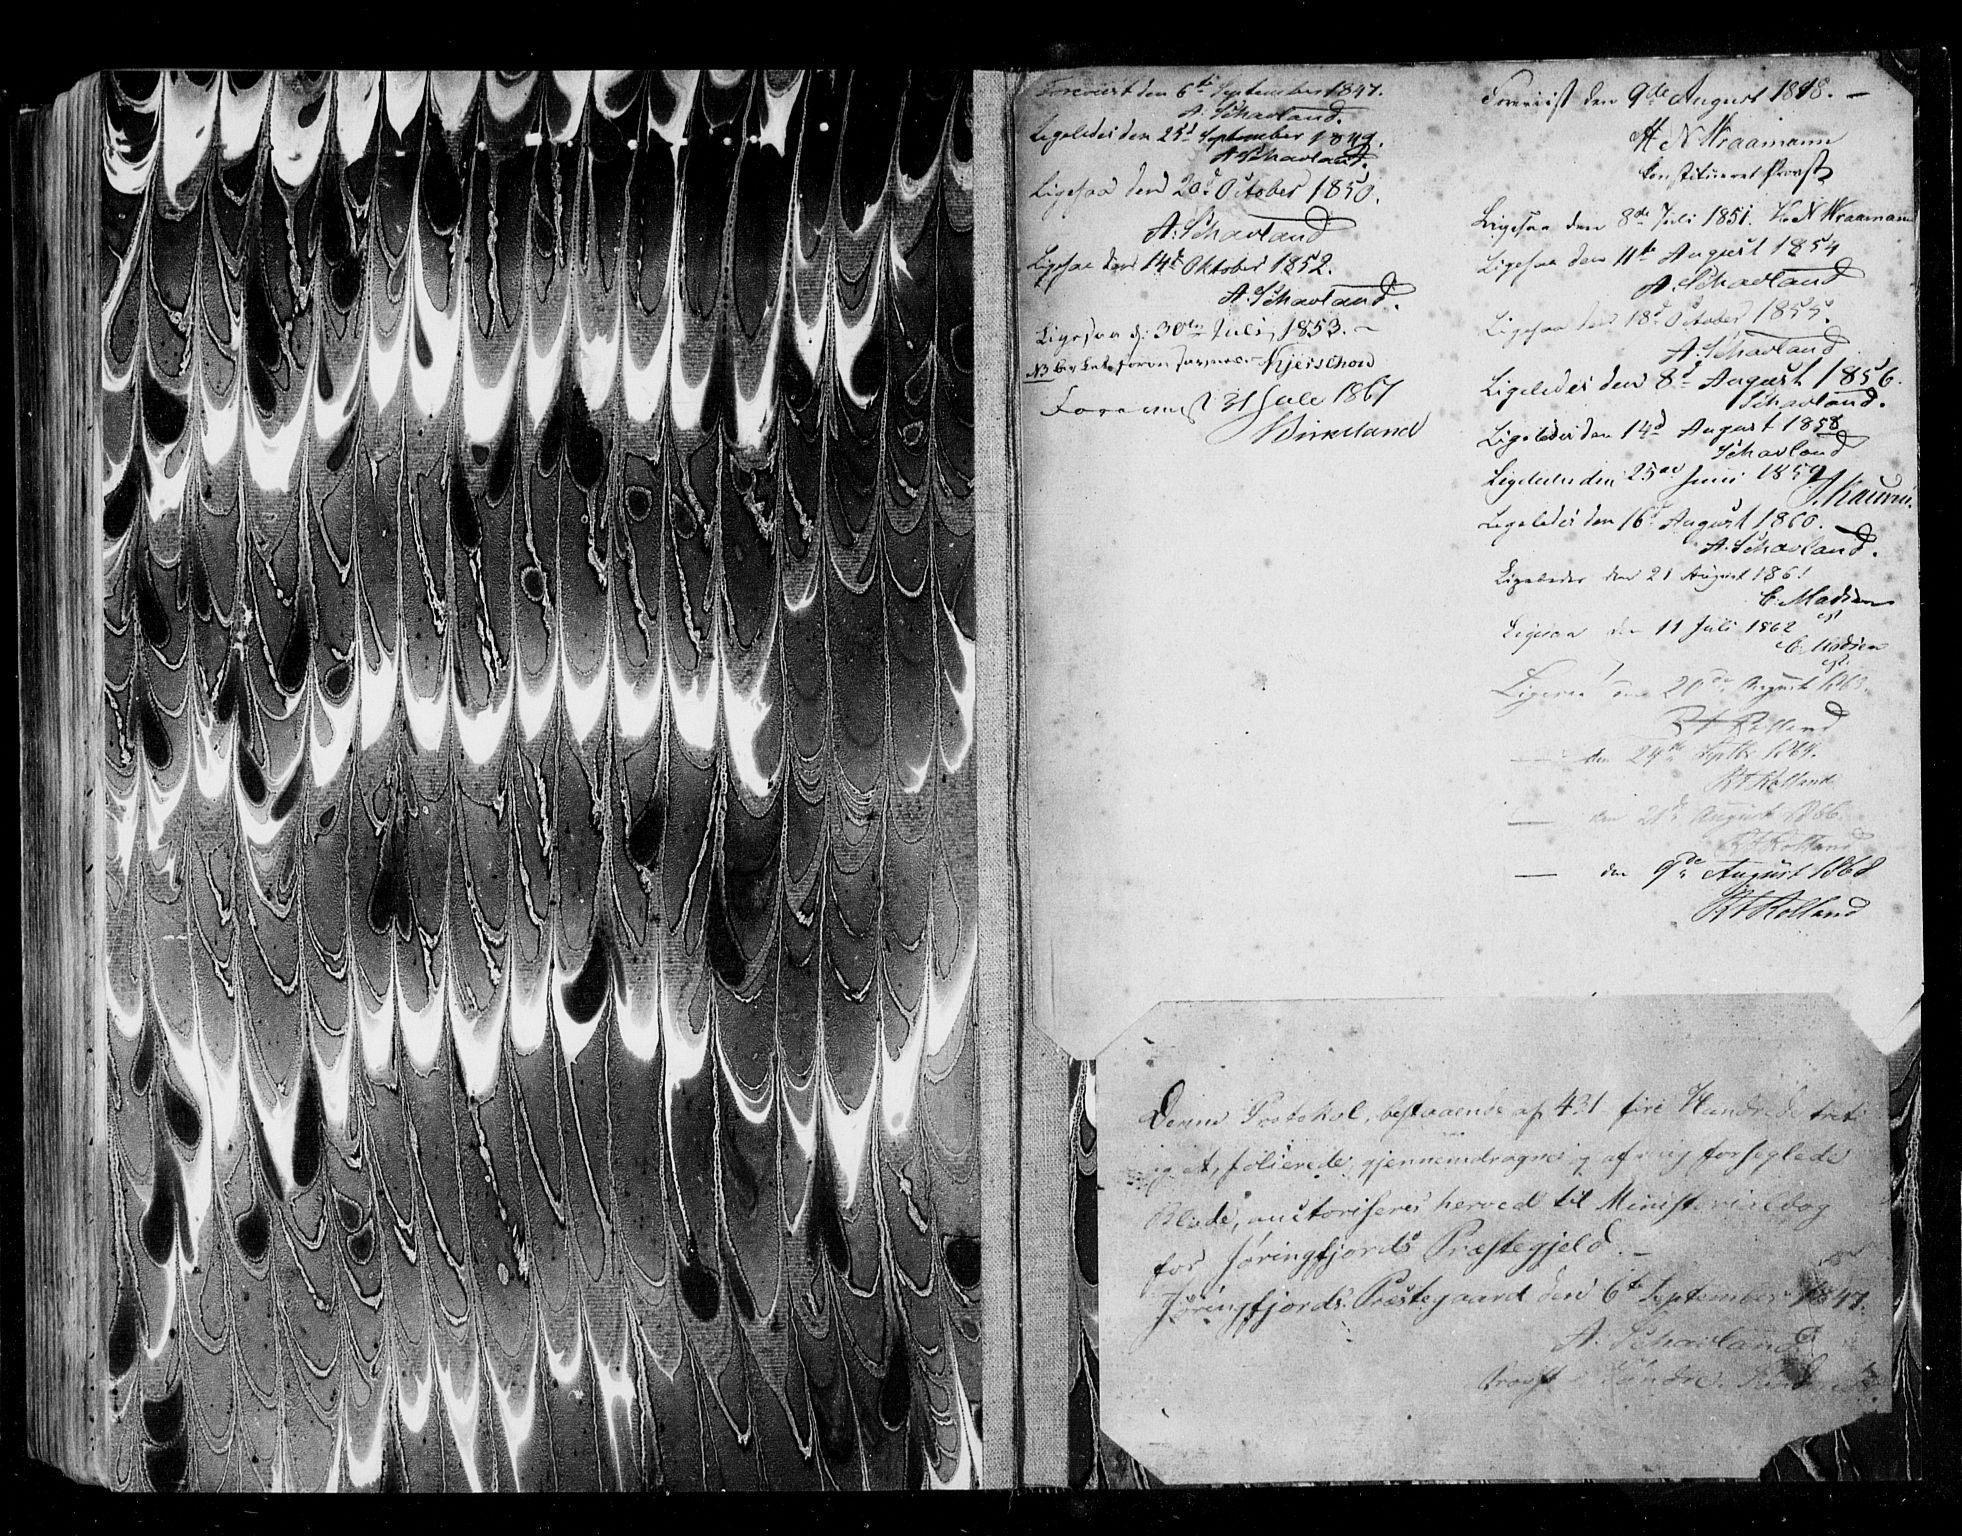 Foreviist den 6te September 1847.
A. Schavland.
Ligeledes den 25d September 1849.
A. Schavland.
Ligesaa den 20d October 1850.
A. Schavland
Ligesaa den 14d Oktober 1852.
A. Schavland.
Ligesaa d. 30te Juli, 1853. –
NB Kjerschow
Foreviist 31 Juli 1867
Birkeland
Foreviist den 9de August 1848. –
N Kraamann
Constitueret Provst
Ligesaa den 8de Juli 1851. N Kraamann
Ligesaa den 11te August 1854
A. Schavland
Ligesaa den 18d October 1855.
A. Schavland
Ligeledes den 8d August 1856.
Schavland.
Ligeledes den 14d August 1858
Schavland
Ligeledes den 25de Juni 1859
Ligeledes den 16d August 1860.
A. Schavland.
Ligeledes den 21 August 1861
C. Madsen
cst
Ligesaa den 11 Juli 1862
C. Madsen
cst.
Ligesaa den 20de August 1863.
Rolland
— den 29de Septbr
Rolland
— den 21de August 1866.
Rolland
— den 9de August 1868
Rolland
Denne Protokol, bestaaende af 431 fire Hundrede treti
og et, folierede, gjennemdragne og af mig forseglede
Blade, auctoriseres herved til Ministerialbog
for Jøringfjords Præstegjeld. –
Jøringfjords Prestegaard den 6te September 1847.
A. Schavland.
Provst Søndre